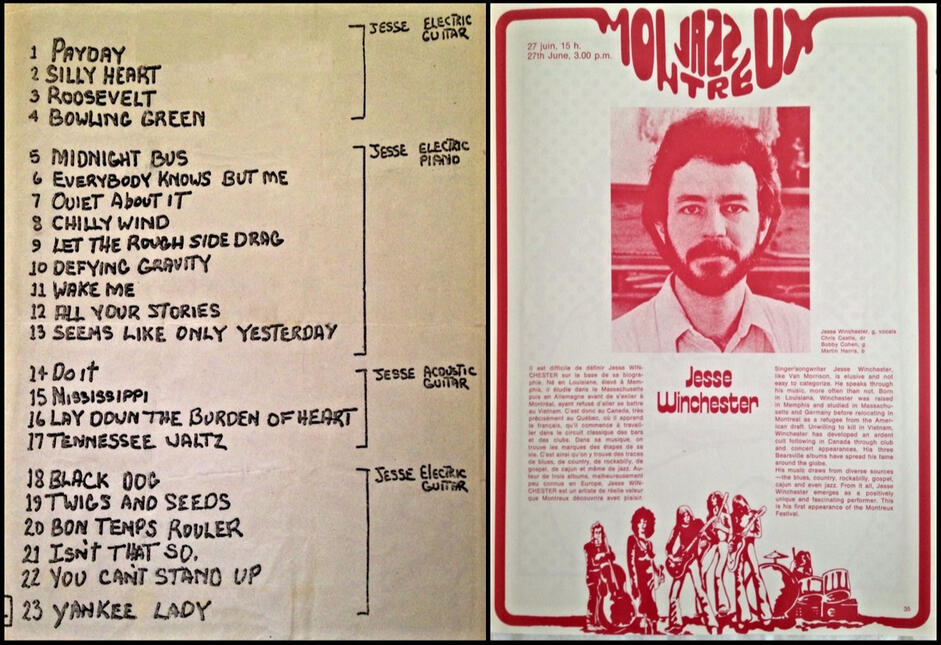 JESSE ELECTRIC
GUITAR
1 PAYDAY
2 SILLY HEART
3 ROOSEVELT
4 BOWLING GREEN
JESSE ELECTRIC
PIANO
5 MIDNIGHT BUS
6 EVERYBODY KNOWS BUT ME
7 QUIET ABOUT IT
8 CHILLY WIND
9 LET THE ROUGH SIDE DRAG
10 DEFYING GRAVITY
11 WAKE ME
12 ALL YOUR STORIES
13 SEEMS LIKE ONLY YESTERDAY
JESSE ACOUSTIC
GUITAR
14 DO IT
15 MISSISSIPPI
16 LAY DOWN THE BURDEN OF HEART
17 TENNESSEE WALTZ
JESSE ELECTRIC
GUITAR
18 BLACK DOG
19 TWIGS AND SEEDS
20 BON TEMPS ROULER
21 ISN'T THAT SO.
22 YOU CAN'T STAND UP
23 YANKEE LADY
27 juin, 15 h.
27th June, 3.00 p.m.
MONTREUX
JAZZ
Jesse Winchester, g, vocals
Chris Castle, dr
Bobby Cohen, g
Martin Harris, b
Jesse
Winchester
Il est difficile de définir Jesse WIN-
CHESTER sur la base de sa biogra-
phie. Né en Louisiane, élevé à Mem-
phis, il étudie dans le Massachusetts
puis en Allemagne avant de s'exiler à
Montréal, ayant refusé d'aller se battre
au Vietnam. C'est donc au Canada, très
précisément au Québec, où il apprend
le français, qu'il commence à travail-
ler dans le circuit classique des bars
et des clubs. Dans sa musique, on
trouve les marques des étapes de sa
vie. C'est ainsi qu'on y trouve des traces
de blues, de country, de rockabilly, de
gospel, de cajun et même de jazz. Au-
teur de trois albums, malheureusement
peu connus en Europe, Jesse WIN-
CHESTER est un artiste de réelle valeur
que Montreux découvrira avec plaisir.
Singer/songwriter Jesse Winchester,
like Van Morrison, is elusive and not
easy to categorize. He speaks through
his music, more often than not. Born
in Louisiana, Winchester was raised
in Memphis and studied in Massachu-
setts and Germany before relocating in
Montreal as a refugee from the Ameri-
can draft. Unwilling to kill in Vietnam,
Winchester has developed an ardent
cult following in Canada through club
and concert appearances. His three
Bearsville albums have spread his fame
around the globe.
His music draws from diverse sources
—the blues, country, rockabilly, gospel,
cajun and even jazz. From it all, Jesse
Winchester emerges as a positively
unique and fascinating performer. This
is his first appearance of the Montreux
Festival.
35